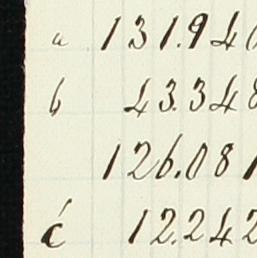 a 131.940
b 43.348
126.081
c 12.242